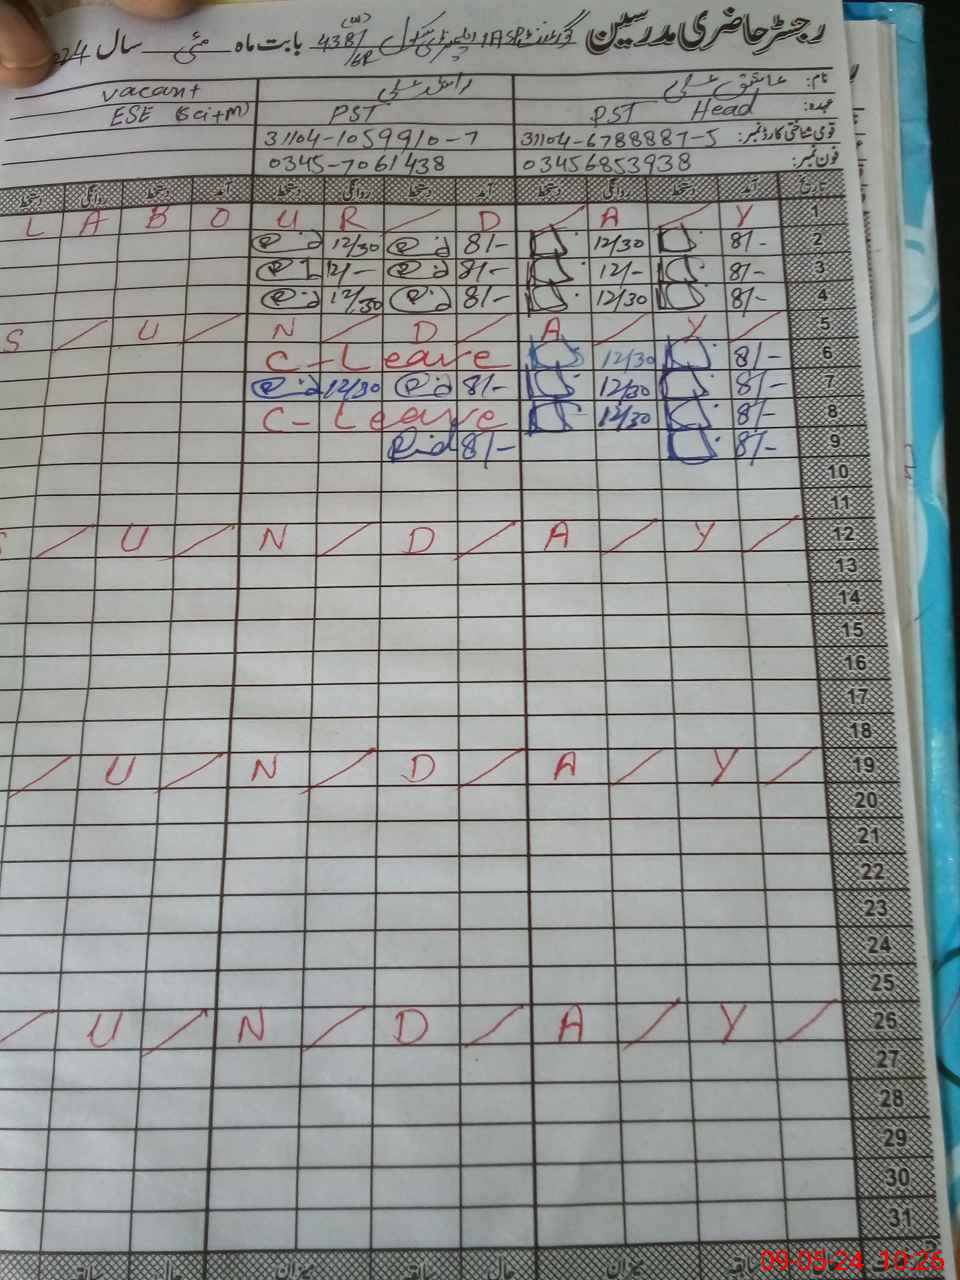 رجسٹر حاضری مدرسین گورنمنٹ 438/6R بابت ماہ مئی سال 2024
نام: عاشق علی vacant
عہدہ: PST Head PST ESE (Sci+M)
قومی شناختی کارڈ نمبر: 31104-6788887-5 31104-1059910-7
فون نمبر: 03456853938 0345-7061438
تاریخ آمد دستخط روانگی دستخط آمد دستخط روانگی دستخط آمد دستخط روانگی دستخط
L A B O U R / D / A / Y 1
12/30 8/- 12/30 8/- 2
12/- 8/- 12/- 8/- 3
12/30 8/- 12/30 8/- 4
S / U / N / D / A / Y / 5
C-Leave 12/30 8/- 6
12/30 8/- 12/30 8/- 7
C-Leave 12/30 8/- 8
8/- 8/- 9
10
11
/ U / N / D / A / Y / 12
13
14
15
16
17
18
/ U / N / D / A / Y / 19
20
21
22
23
24
25
/ U / N / D / A / Y / 26
27
28
29
30
31
میزان میزان
09-05-24 10:26